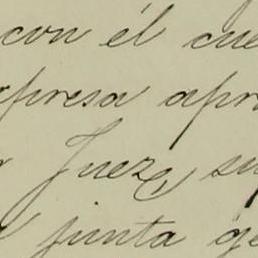 con él cue
presa apr
Juez, su
junta ge